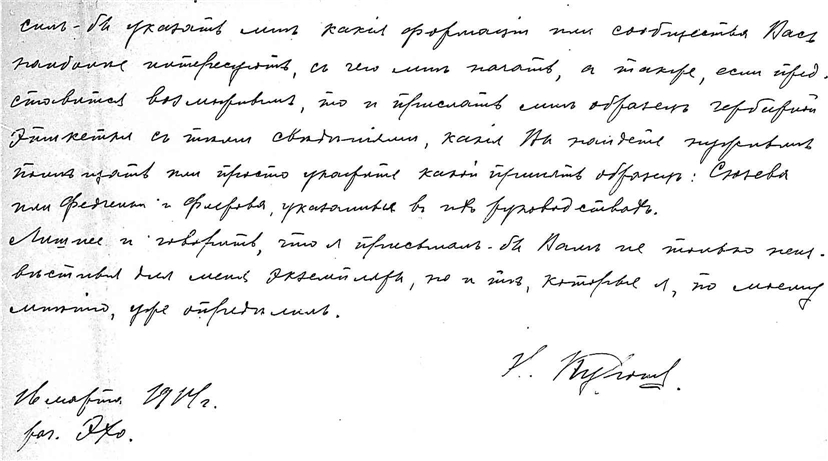 силъ-бы указать мнѣ какія формаціи или сообщества Васъ
наиболѣе интересуютъ, съ чего мнѣ начать, а также, если пред-
ставится возможнымъ, то и прислать мнѣ образецъ гербарной
этикетки съ тѣми свѣдѣніями, какія Вы найдете нужнымъ
помѣщать или просто укажите какой принять образецъ: Сюзева
или Федченки и Флерова, указанные въ ихъ руководствахъ.
Лишнее и говорить, что я присылалъ-бы Вамъ не только неиз-
вѣстные для меня экземпляры, но и тѣ, которые я, по моему
мнѣнію, уже опредѣлилъ.
16 марта 1914 г.
раз. Эхо.